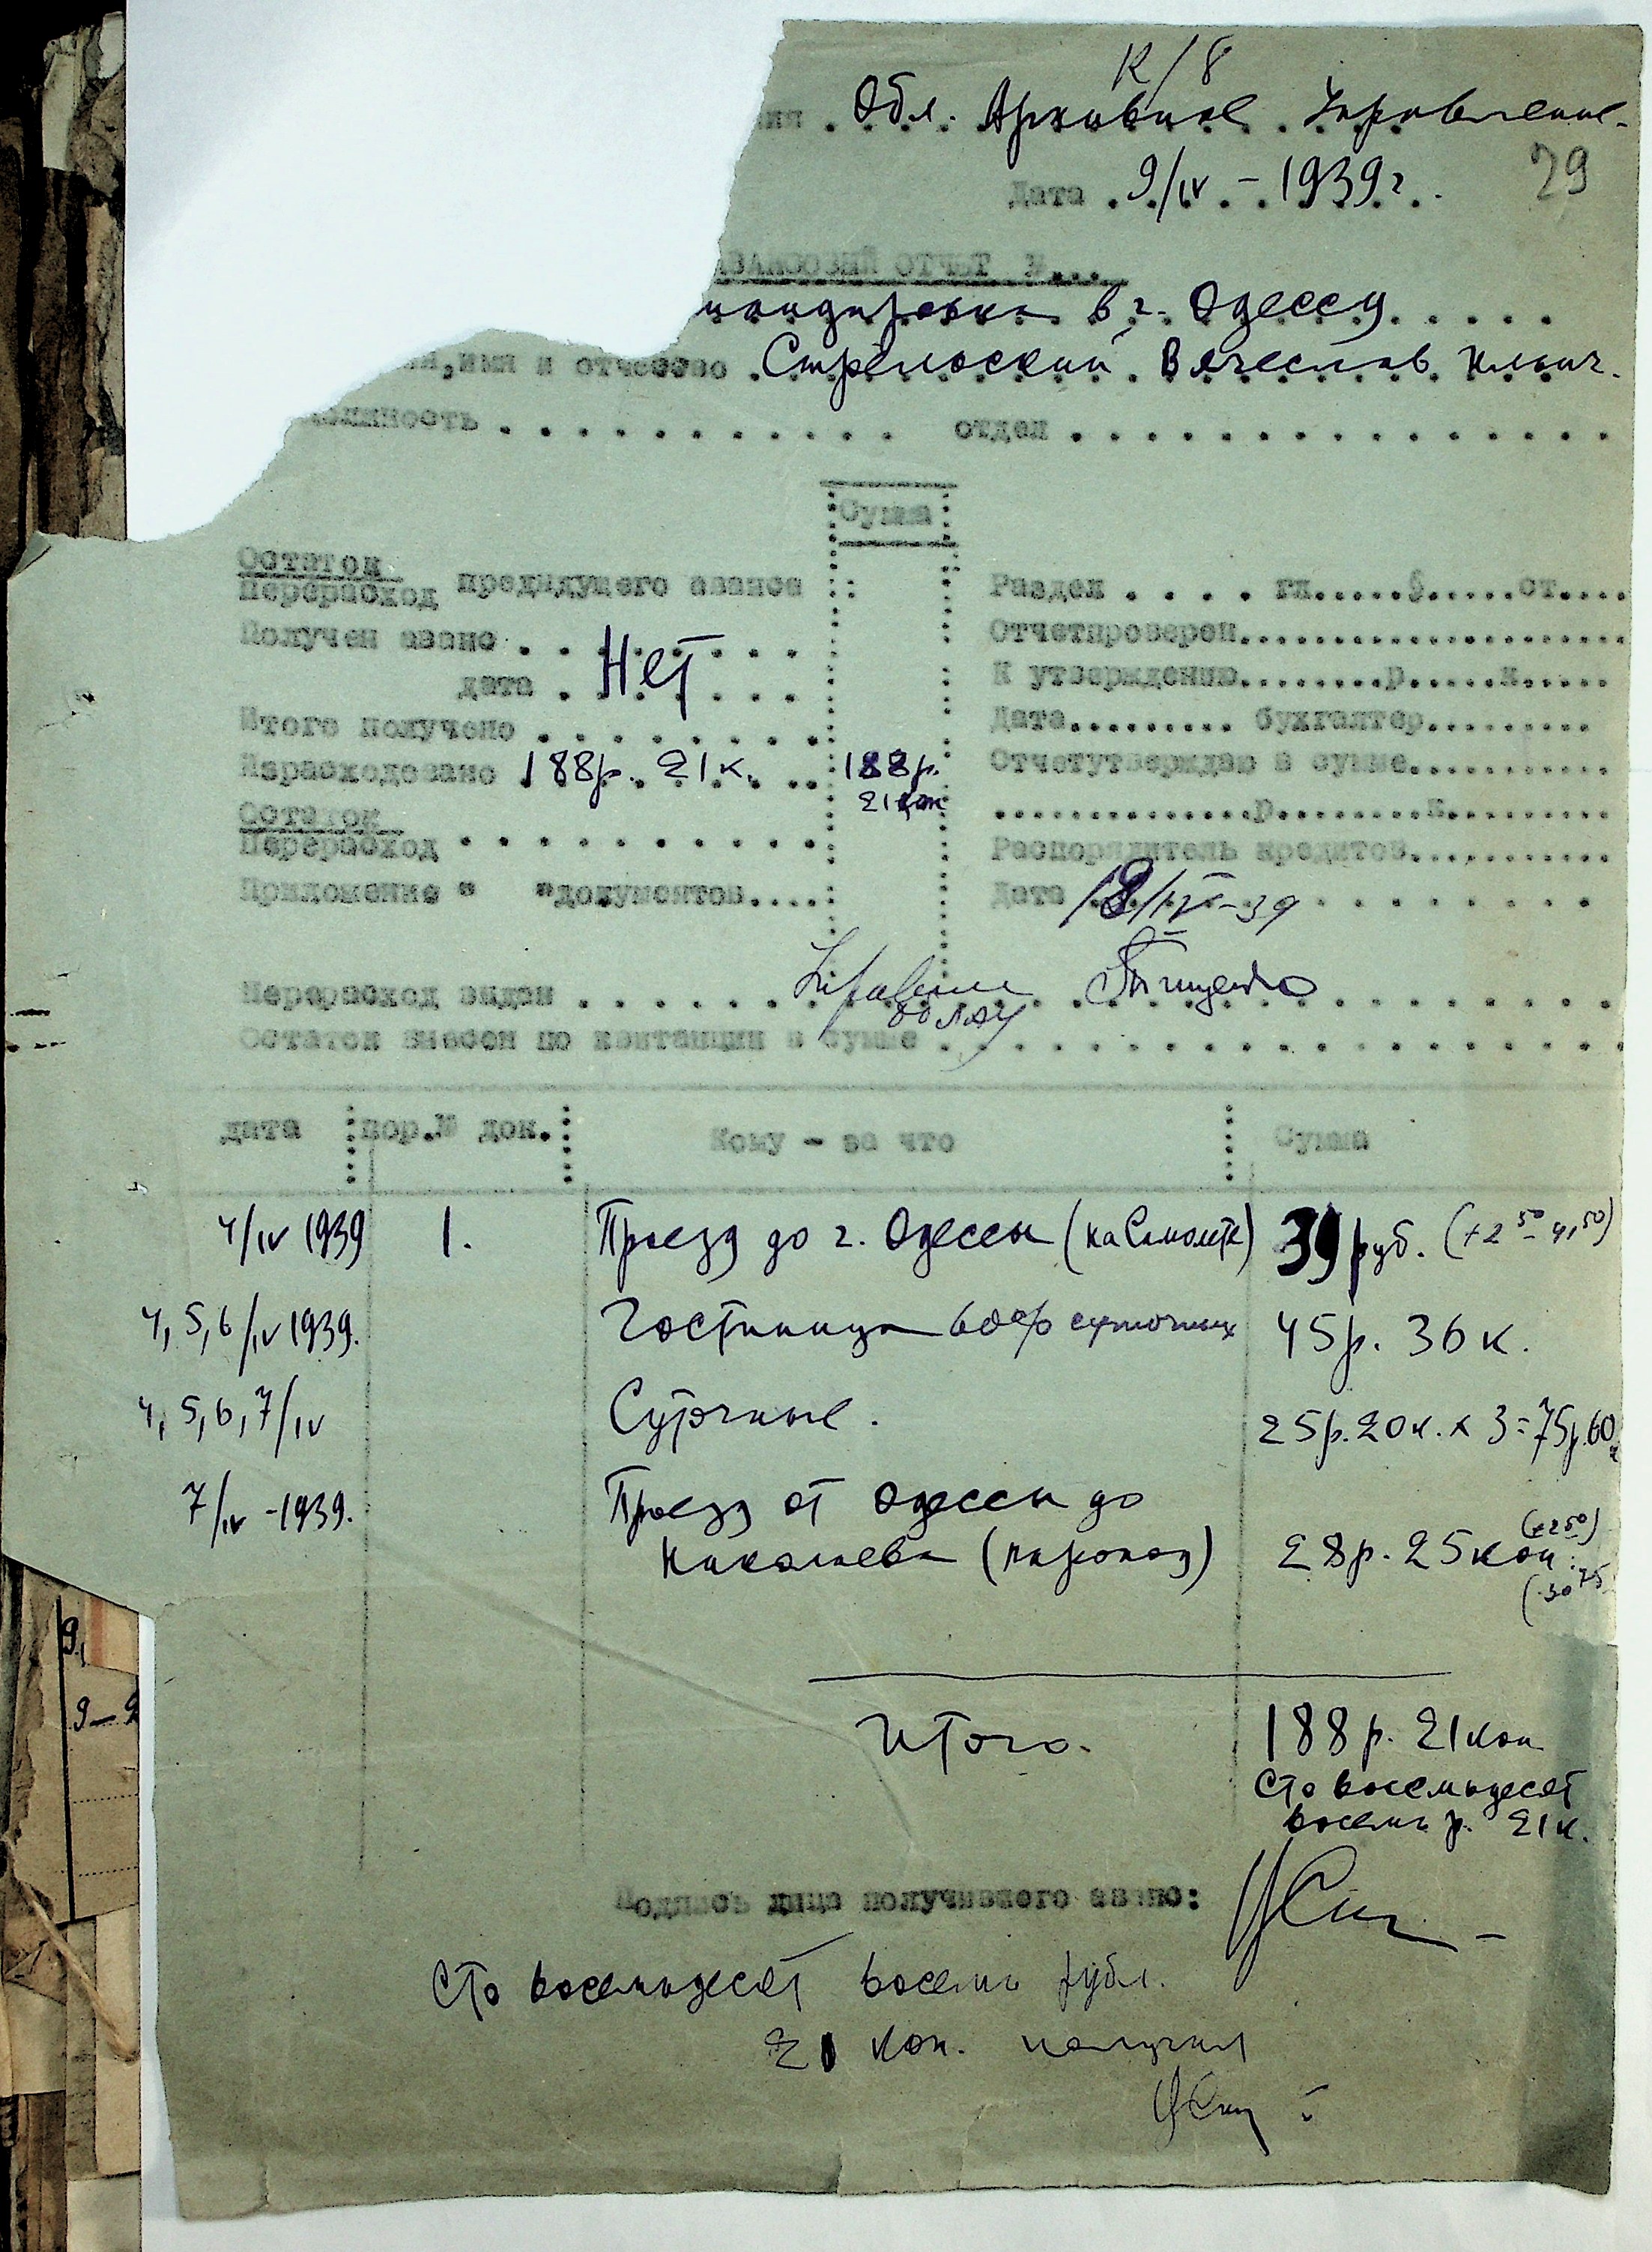 К/8
ния . Обл. Архивное Управление.
Дата . 9/IV – 1939 г.
29
АВАНСОВЫЙ ОТЧЕТ №...
мандировка в г. Одессу
ия, имя и отчество . Стрельский Вячеслав Ильич.
олжность . . . . . . . . . . . отдел . . . . . . . . . . . . . .
Сумма
Остаток
Перерасход предидущего аванса
Раздел . . . . гл.....§.....ст....
Получен аванс . . . . . . . .
Отчетпроверен....................
Нет
дата . . . . . . .
К утверждению........р.....к.....
Итого получено . . . . . . . .
Дата......... бухгалтер.........
Израсходовано 188р. 21к. . . 188р.
21 коп
Отчетутверждаю в сумме............
..............р.........к..........
Остаток
Перерасход . . . . . . . . . . .
Распорядитель кредитов...........
Приложение " " документов....
Дата 18/IV-39
Перерасход выдан . . . . . . . . . . . . . .
облАУ
Остаток внесен по квитанции в сумме . . . . . . . . . . . . .
дата пор.№ док. Кому – за что Сумма
4/IV 1939 1. Проезд до г. Одессы (на Самолете) 39 руб. (+2 50 = 41,50)
4, 5, 6/IV 1939. Гостиница 60% суточных 45р. 36 к.
4, 5, 6, 7/IV Суточные. 25р. 20к. x 3 = 75р. 60к
7/IV -1939. Проезд от Одессы до
Николаева (пароход) 28р. 25 коп. (+2 50)
(30 75
Итого. 188 р. 21 коп
Сто восемьдесят
восемь р. 21 к.
Подпись лица получившего аванс:
Сто восемьдесят восемь рубл.
21 коп. получил
9.
9–9